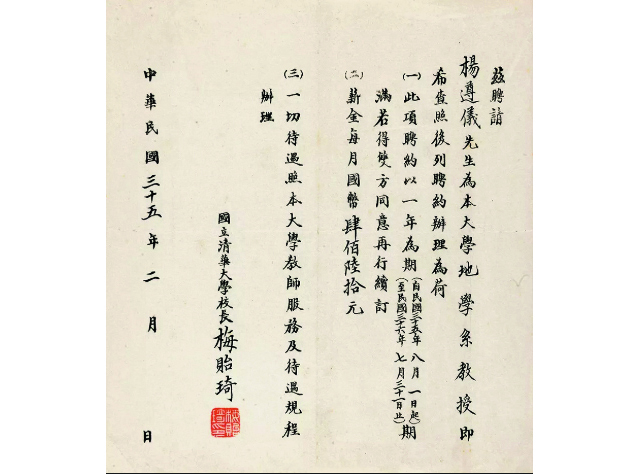 茲聘請
楊遵儀先生為本大學地學系教授即
希查照後列聘約辦理為荷
(一)此項聘約以一年為期(自民國三十五年八月一日起)(至民國三十六年七月三十一日止)期
滿若得雙方同意再行續訂
(二)薪金每月國幣肆佰陸拾元
(三)一切待遇照本大學教師服務及待遇規程
辦理
國立清華大學校長梅貽琦
中華民國三十五年二月 日